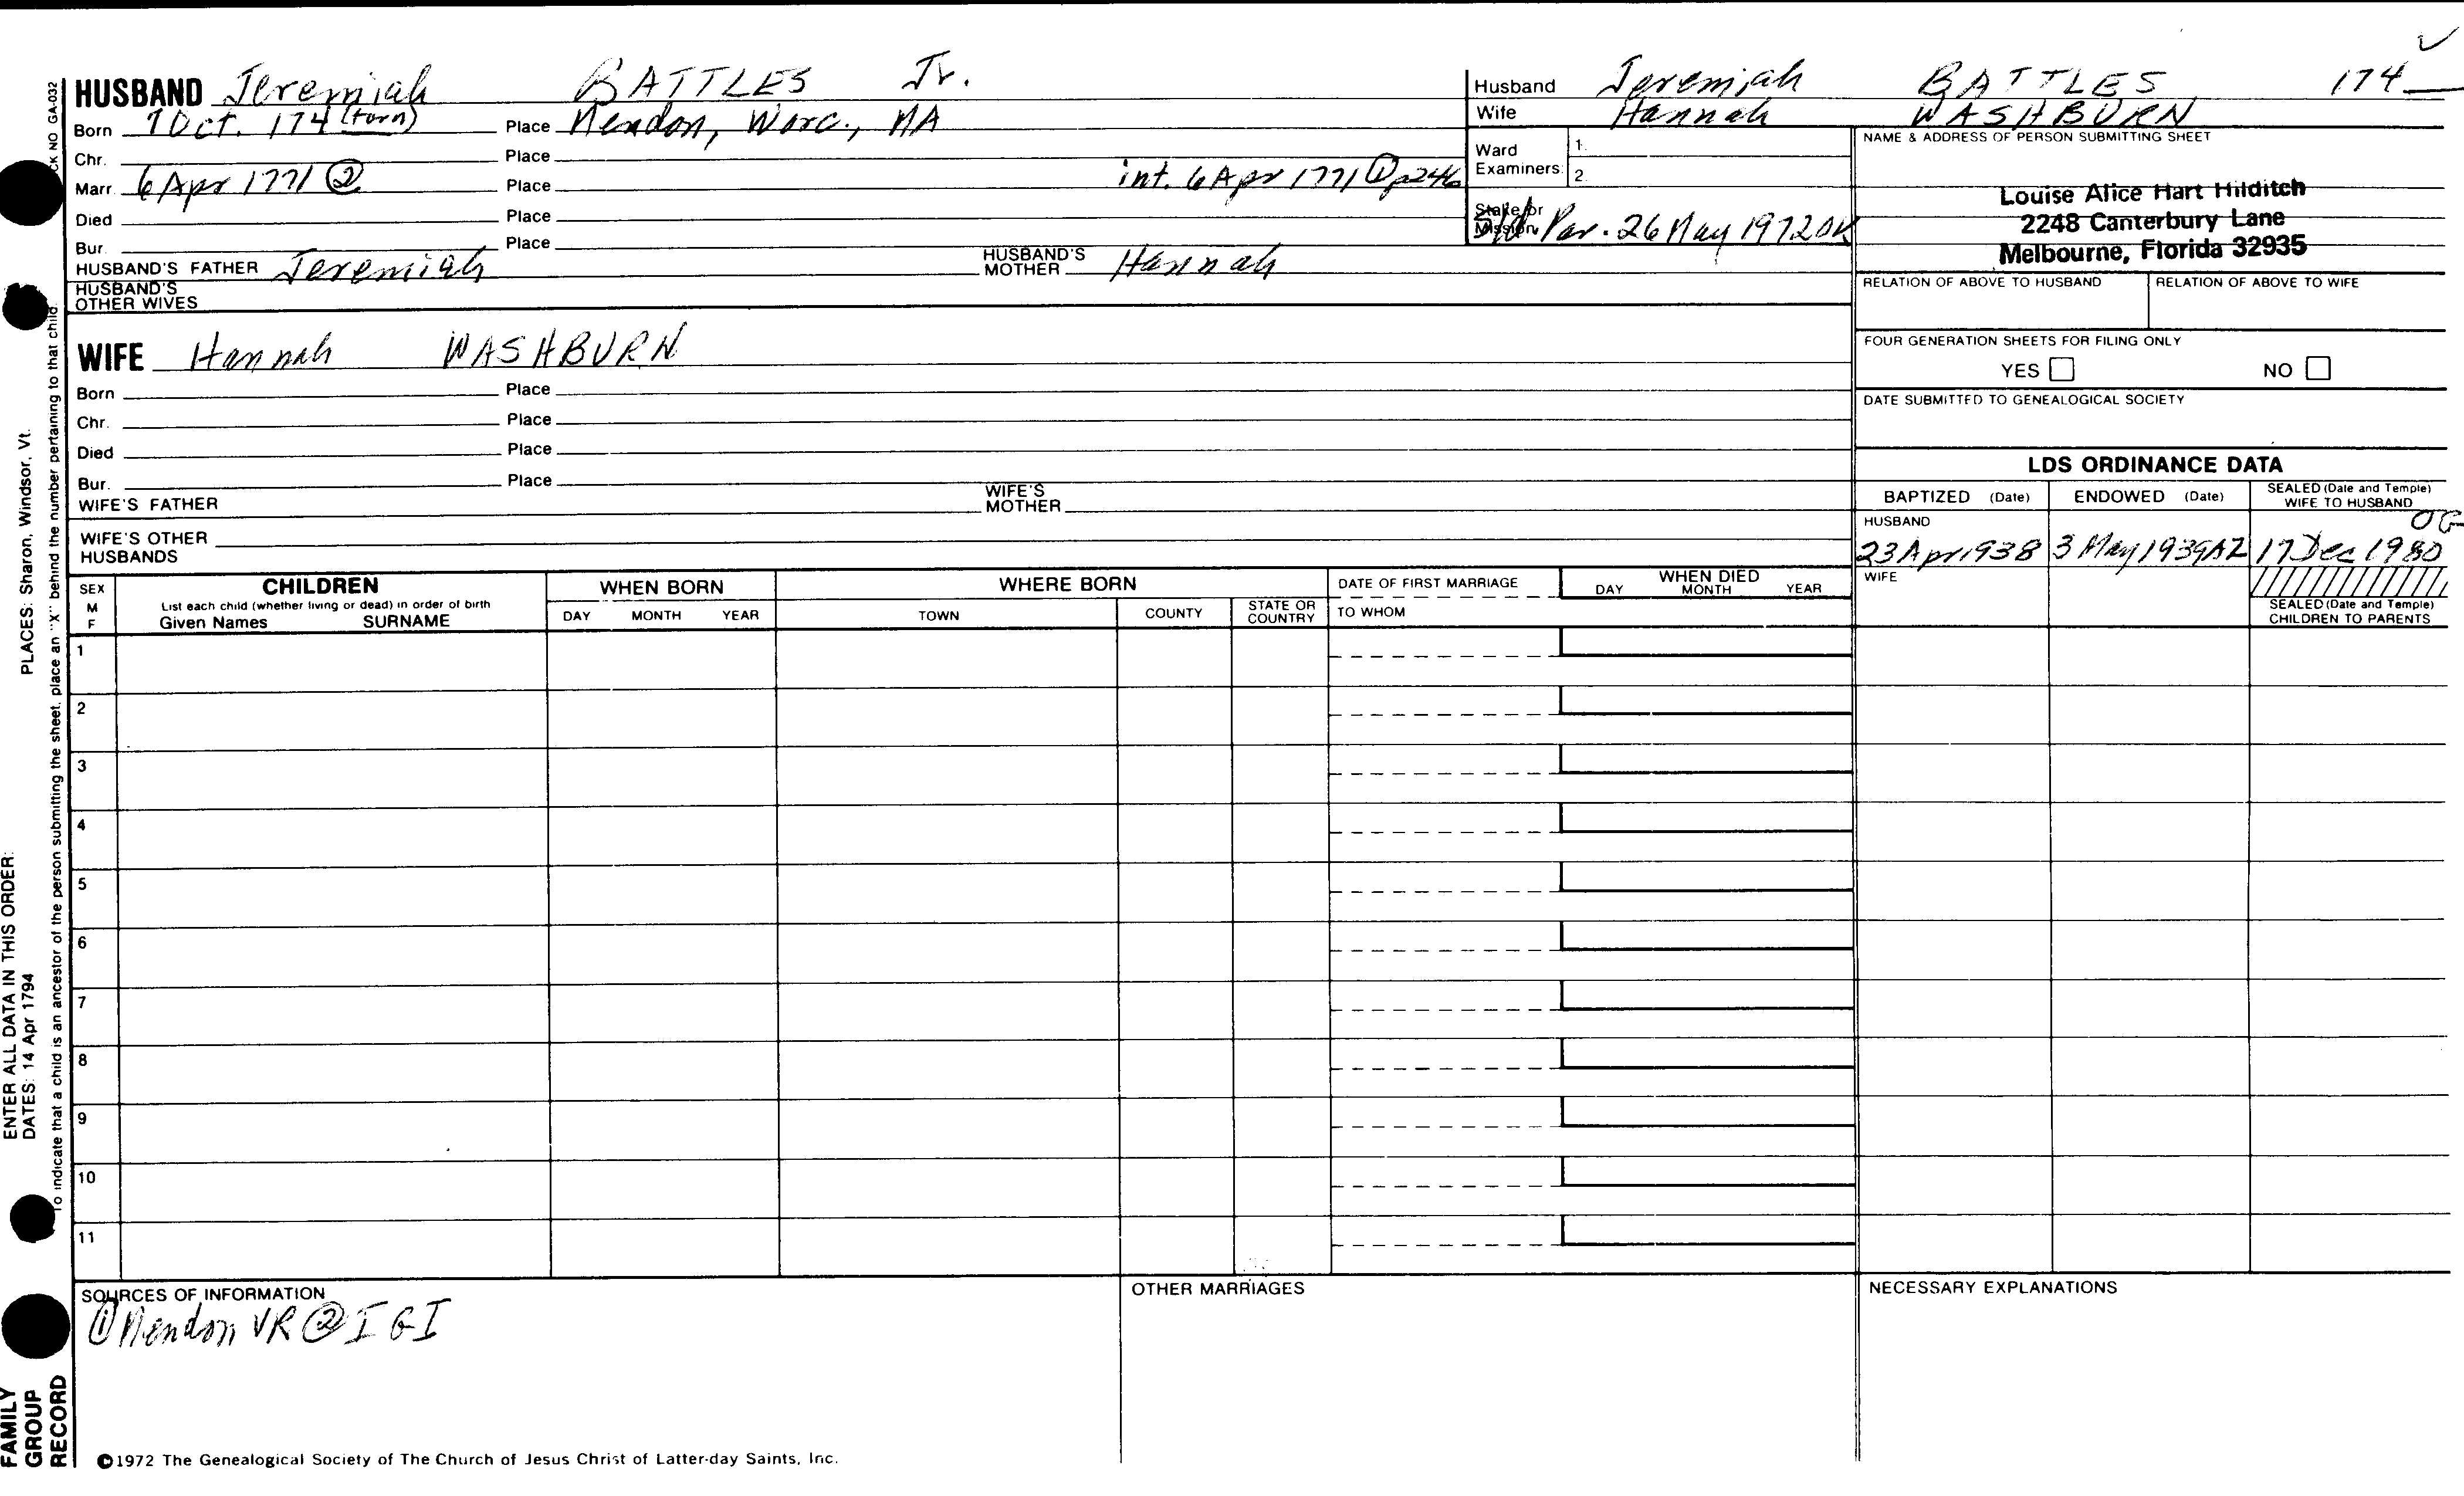 HUSBAND Jeremiah BATTLES Jr.
Born 7 Oct. 174 (torn) Place Mendon, Worc., MA
Chr. Place
Marr. 6 Apr 1771 ② Place int. 6 Apr 1771 ① p246
Died Place
Bur. Place
HUSBAND'S FATHER Jeremiah HUSBAND'S MOTHER Hannah
HUSBAND'S OTHER WIVES
WIFE Hannah WASHBURN
Born Place
Chr. Place
Died Place
Bur. Place
WIFE'S FATHER WIFE'S MOTHER
WIFE'S OTHER HUSBANDS
Husband Jeremiah BATTLES 174_
Wife Hannah WASHBURN
Ward 1.
Examiners: 2.
Stake or Mission
Sld Par. 26 May 1972 OK
NAME & ADDRESS OF PERSON SUBMITTING SHEET
Louise Alice Hart Hilditch
2248 Canterbury Lane
Melbourne, Florida 32935
RELATION OF ABOVE TO HUSBAND RELATION OF ABOVE TO WIFE
FOUR GENERATION SHEETS FOR FILING ONLY
YES NO
DATE SUBMITTED TO GENEALOGICAL SOCIETY
LDS ORDINANCE DATA
BAPTIZED (Date) ENDOWED (Date) SEALED (Date and Temple) WIFE TO HUSBAND
HUSBAND OG
23 Apr 1938 3 May 1939 AZ 17 Dec 1980
WIFE
SEALED (Date and Temple) CHILDREN TO PARENTS
SEX M F
CHILDREN
List each child (whether living or dead) in order of birth
Given Names SURNAME
WHEN BORN
DAY MONTH YEAR
WHERE BORN
TOWN COUNTY STATE OR COUNTRY
DATE OF FIRST MARRIAGE
TO WHOM
WHEN DIED
DAY MONTH YEAR
1
2
3
4
5
6
7
8
9
10
11
SOURCES OF INFORMATION
① Mendon VR ② IGI
OTHER MARRIAGES
NECESSARY EXPLANATIONS
©1972 The Genealogical Society of The Church of Jesus Christ of Latter-day Saints, Inc.
FAMILY
GROUP
RECORD
ENTER ALL DATA IN THIS ORDER:
DATES: 14 Apr 1794 PLACES: Sharon, Windsor, Vt.
To indicate that a child is an ancestor of the person submitting the sheet, place an "X" behind the number pertaining to that child.
NO GA-032